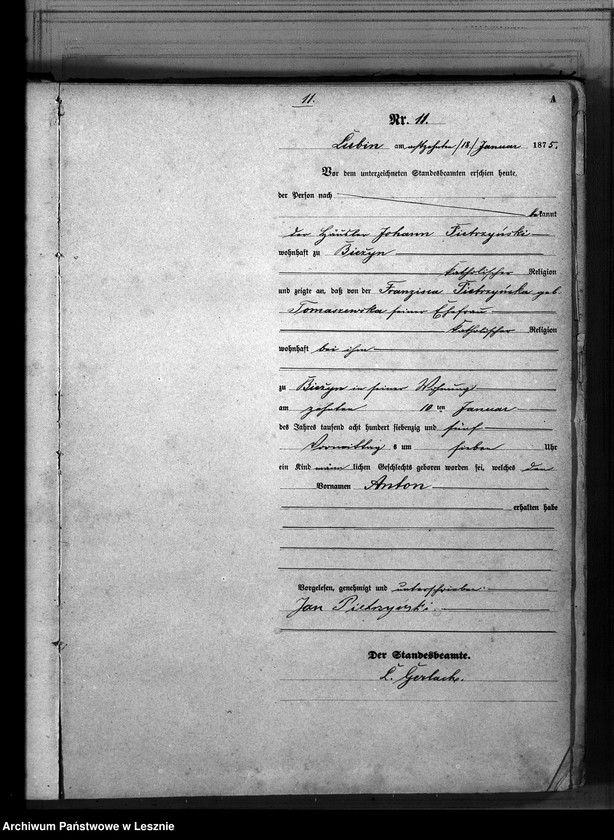 11.
A
Nr. 11.
Lubin am achtzehnten /18./ Januar 1875.
Vor dem unterzeichneten Standesbeamten erschien heute,
der Person nach
bekannt
der Häusler Johann Pietrzyński
wohnhaft zu Bieżyn
katholischer Religion
und zeigte an, daß von der Franzisca Pietrzyńska geb.
Tomaszewska seiner Ehefrau
katholischer Religion
wohnhaft bei ihm
zu Bieżyn in seiner Wohnung
am zehnten 10 ten Januar
des Jahres tausend acht hundert siebenzig und fünf
Vormittag s um sieben Uhr
ein Kind männ lichen Geschlechts geboren worden sei, welches den
Vornamen Anton
erhalten habe
Vorgelesen, genehmigt und unterschrieben
Jan Pietrzyński
Der Standesbeamte.
L. Gerlach.
Archiwum Państwowe w Lesznie